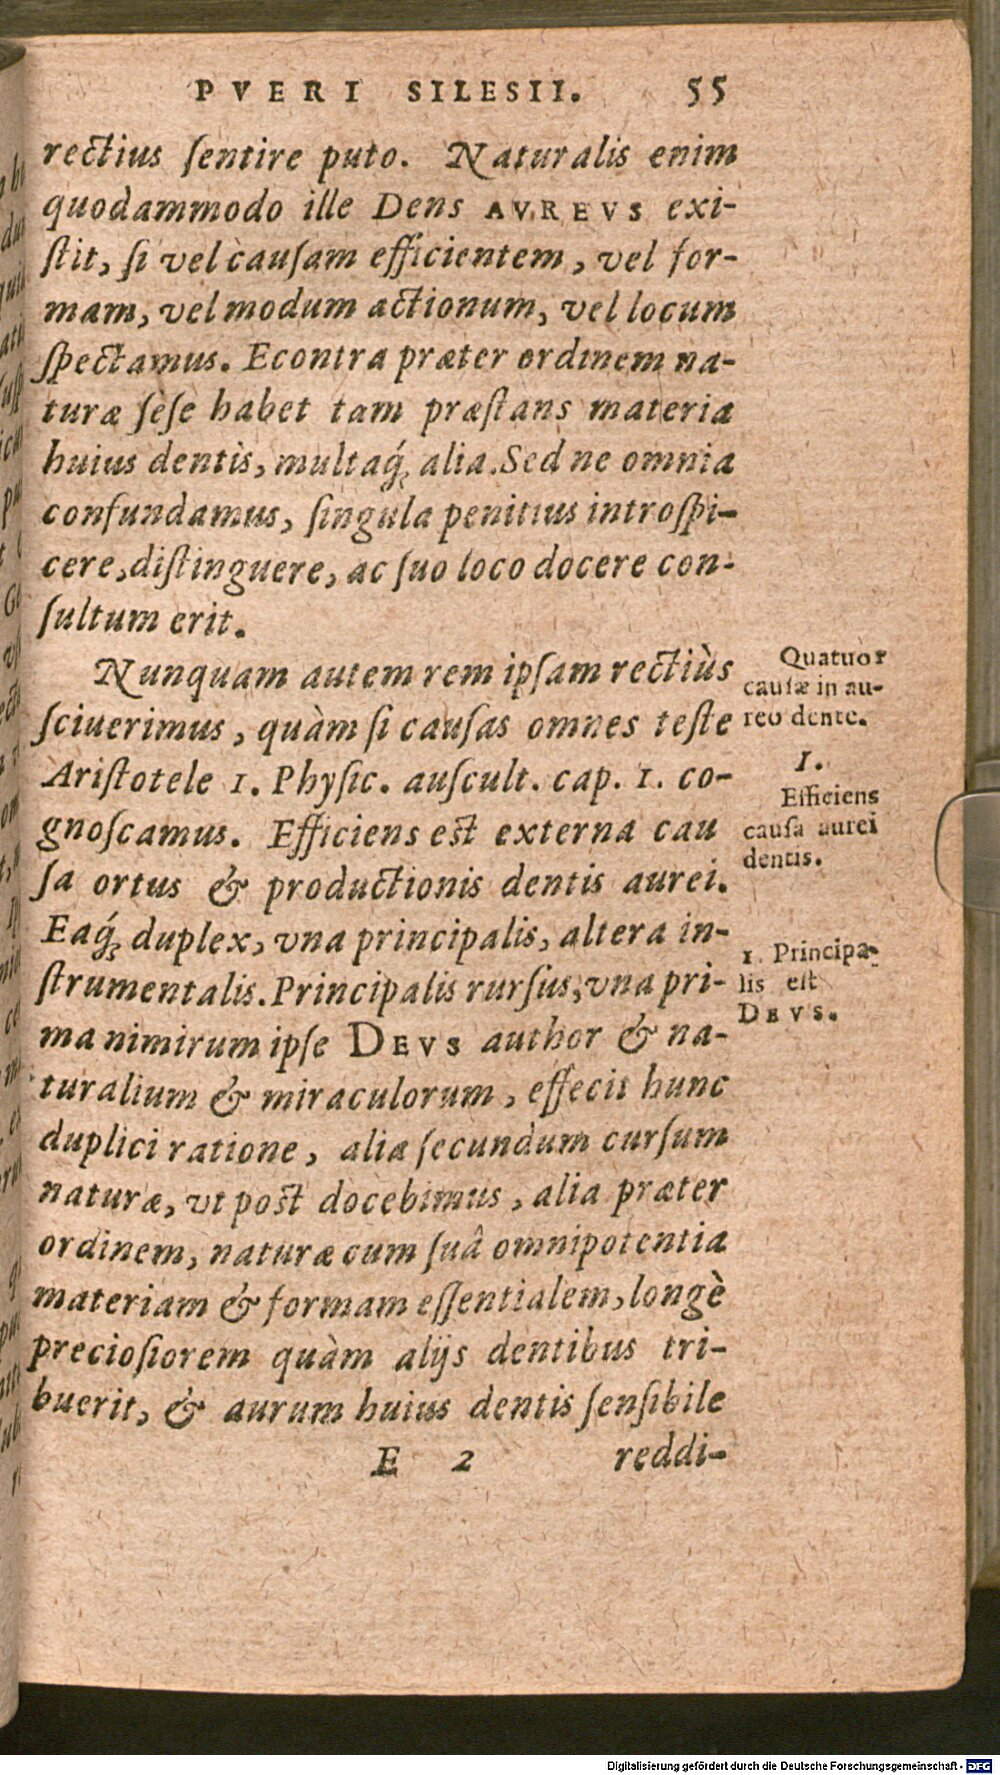 PVERI SILESII. 55
rectius ſentire puto. Naturalis enim
quodammodo ille Dens AVREVS exi-
ſtit, ſi vel cauſam efficientem, vel for-
mam, vel modum actionum, vel locum
ſpectamus. Econtra præter ordinem na-
turæ ſeſe habet tam præſtans materia
huius dentis, multaq́; alia. Sed ne omnia
confundamus, ſingula penitius introſpi-
cere, diſtinguere, ac ſuo loco docere con-
ſultum erit.
Nunquam autem rem ipſam rectiùs
ſciuerimus, quàm ſi cauſas omnes teſte
Ariſtotele 1. Phyſic. auſcult. cap. 1. co-
gnoſcamus. Efficiens est externa cau
ſa ortus & productionis dentis aurei.
Eaq́; duplex, vna principalis, altera in-
ſtrumentalis. Principalis rurſus, vna pri-
ma nimirum ipſe DEVS author & na-
turalium & miraculorum, effecit hunc
duplici ratione, alia ſecundum curſum
naturæ, vt post docebimus, alia præter
ordinem, naturæ cum ſuâ omnipotentia
materiam & formam eſſentialem, longè
precioſiorem quàm alijs dentibus tri-
buerit, & aurum huius dentis ſenſibile
E 2 reddi-
Quatuor
cauſæ in au-
reo dente.
1.
Efficiens
cauſa aurei
dentis.
1. Principa-
lis eſt
DEVS.
Digitalisierung gefördert durch die Deutsche Forschungsgemeinschaft - DFG